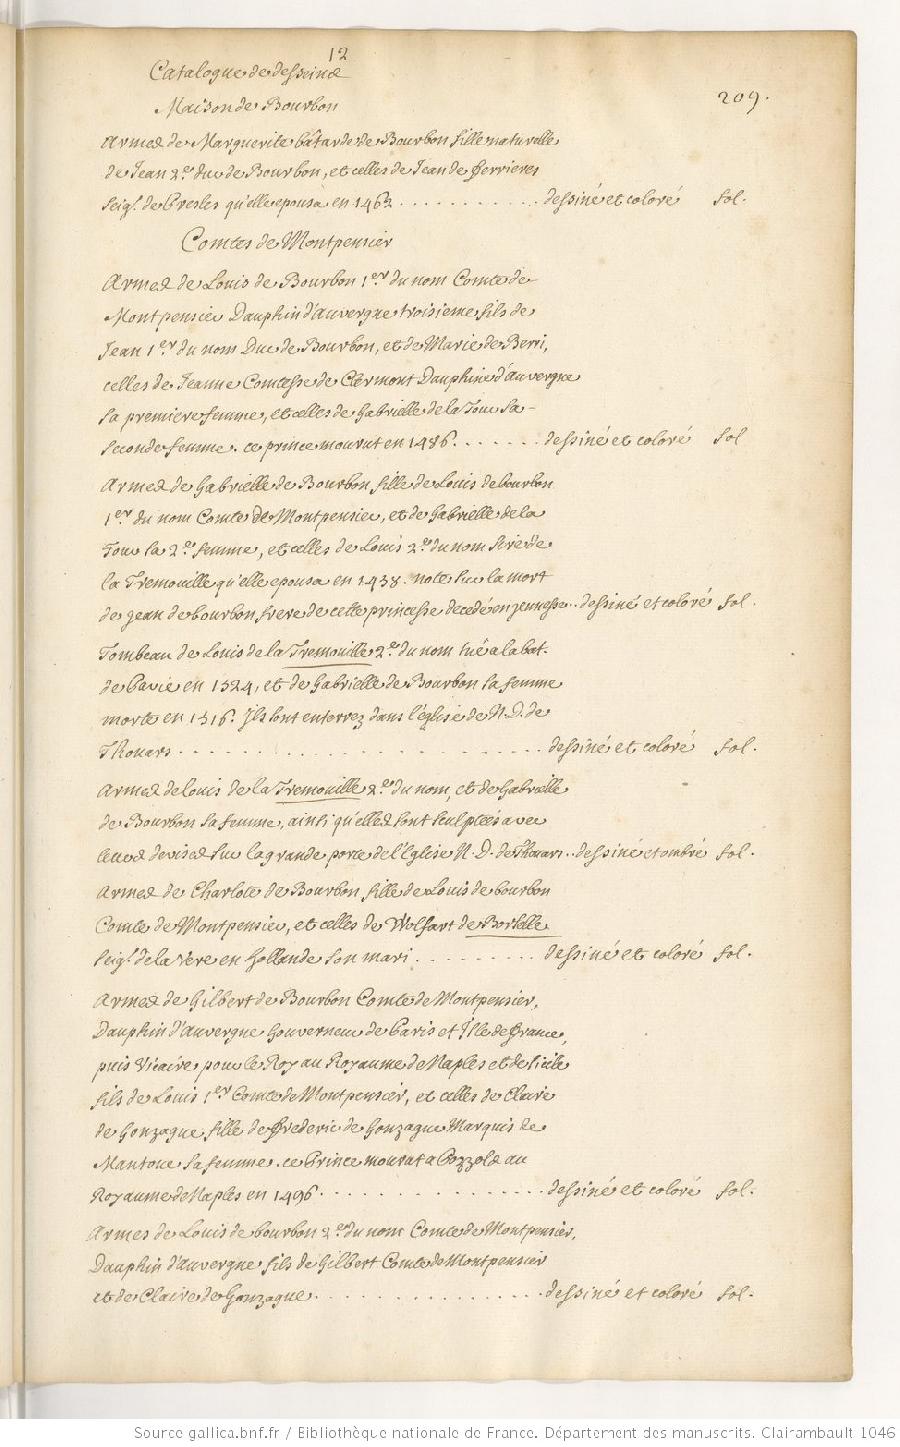 12
Catalogue de desseins
209.
Maison de Bourbon
Armes de Marguerite bâtarde de Bourbon fille naturelle
de Jean 2.e duc de Bourbon, et celles de Jean de Ferrieres
seig.r de Presles qu'elle epousa en 1462 . . . . . . . . . . dessiné et coloré fol.
Comtes de Montpensier
Armes de Louis de Bourbon 1.er du nom Comte de
Montpensier Dauphin d'auvergne troisieme fils de
Jean 1.er du nom Duc de Bourbon, et de Marie de Berri,
celles de Jeanne Comtesse de Clermont Dauphine d'auvergne
sa premiere femme, et celles de Gabrielle de la Tour sa
seconde femme. ce prince mourut en 1486. . . . . . . dessiné et coloré fol
Armes de Gabrielle de Bourbon fille de Louis de bourbon
1.er du nom Comte de Montpensier, et de Gabrielle de la
Tour sa 2.e femme, et celles de Louis 2.e du nom Sire de
la Tremouille qu'elle epousa en 1438. note sur la mort
de jean de bourbon frere de cette princesse decedé en jeunesse.. dessiné et coloré fol.
Tombeau de Louis de la Tremouille 2.e du nom tué a la bat.
de Pavie en 1524, et de Gabrielle de Bourbon sa femme
morte en 1516. Ils sont enterrez dans l'église de N. D. de
Thouars . . . . . . . . . . . . . . . . . . . . . . dessiné et coloré fol.
Armes de louis de la Tremouille 2.e du nom, et de Gabrielle
de Bourbon sa femme, ainsi qu'elles sont sculptées avec
leurs devises sur la grande porte de l'Eglise N. D. de Thouars.. dessiné et ombré fol.
Armes de Charlote de Bourbon fille de Louis de bourbon
Comte de Montpensier, et celles de Wolfart de Borselle
seig.r de la Vere en hollande son mari . . . . . . . . . dessiné et coloré fol.
Armes de Gilbert de Bourbon Comte de Montpensier,
Dauphin d'auvergne Gouverneur de Paris et Isle de france,
puis Vicaire pour le Roy au Royaume de Naples et de sicile
fils de Louis 1.er Comte de Montpensier, et celles de Claire
de Gonzague fille de frederic de Gonzague Marquis de
Mantoue sa femme. ce Prince mourut a Pozzols au
Royaume de Naples en 1496 . . . . . . . . . . . . . . . . dessiné et coloré fol.
Armes de Louis de bourbon 2.e du nom Comte de Montpensier,
Dauphin d'auvergne fils de Gilbert Comte de Montpensier
et de Claire de Gonzague . . . . . . . . . . . . . . . . . dessiné et coloré fol.
Source gallica.bnf.fr / Bibliothèque nationale de France. Département des manuscrits. Clairambault 1046